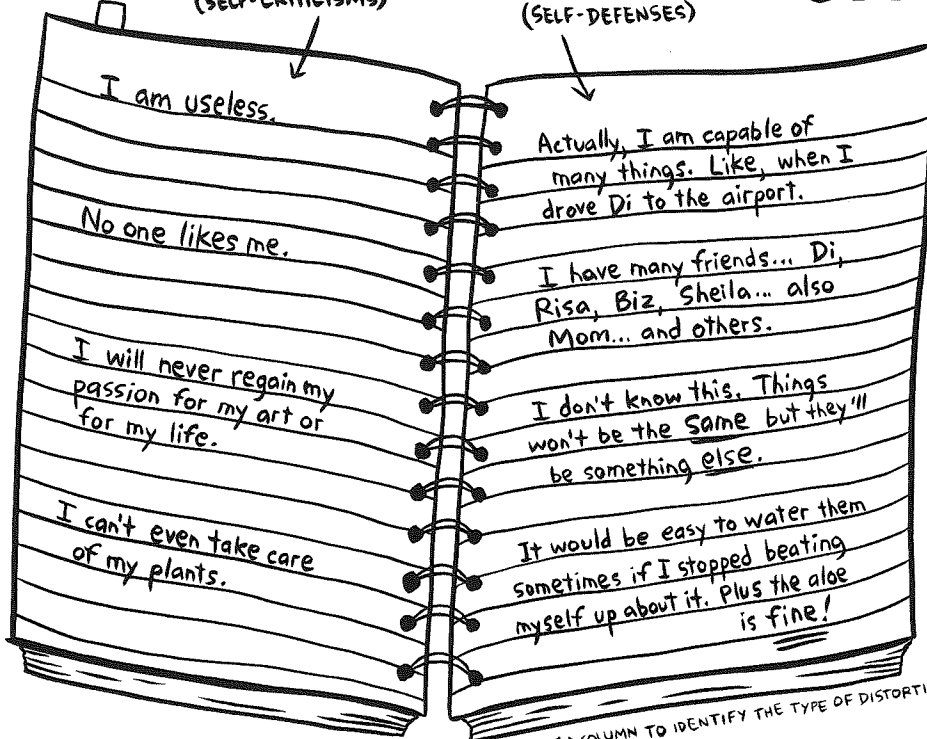 (SELF-CRITICISMS)
(SELF-DEFENSES)
I am useless.
No one likes me.
I will never regain my
passion for my art or
for my life.
I can't even take care
of my plants.
Actually, I am capable of
many things. Like, when I
drove Di to the airport.
I have many friends... Di,
Risa, Biz, Sheila... also
Mom... and others.
I don't know this. Things
won't be the same but they'll
be something else.
It would be easy to water them
sometimes if I stopped beating
myself up about it. Plus the aloe
is fine!
COLUMN TO IDENTIFY THE TYPE OF